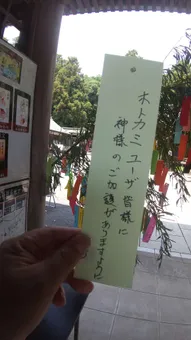 ホトカミユーザ皆様に
神様のご加護がありますように